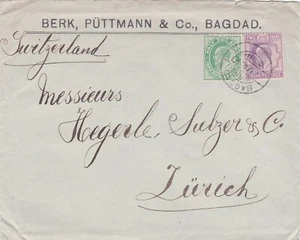 BERK, PÜTTMANN & Co., BAGDAD.
Switzerland
Messieurs
Hegerle, Sulzer & C.
Zürich